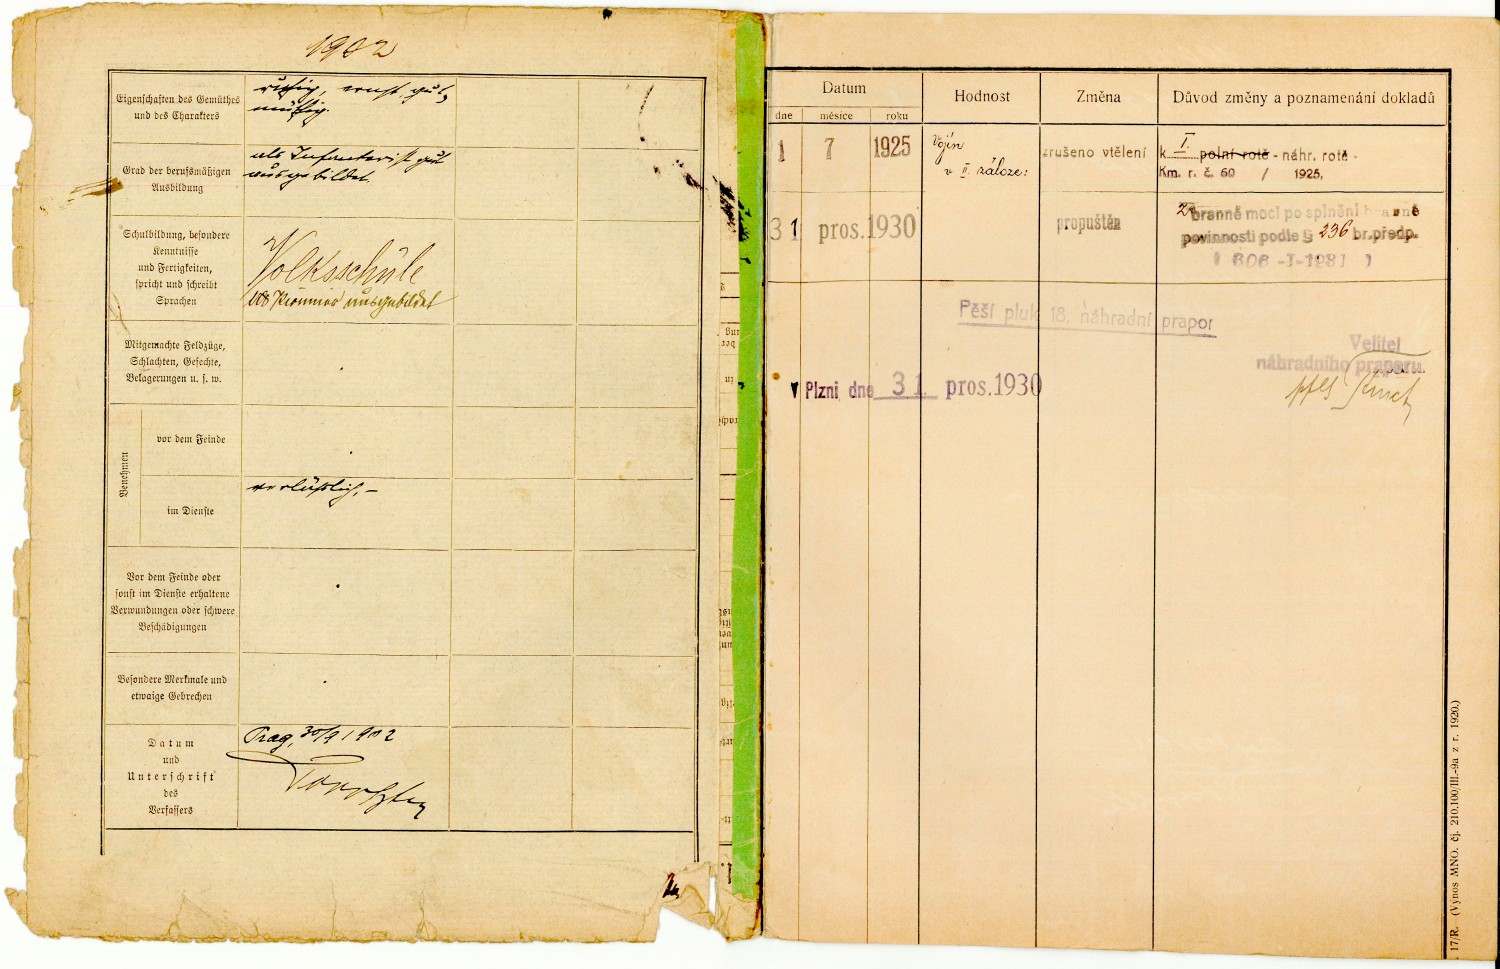 1902
Eigenschaften des Gemüthes
und des Charakters
ruhig, ernst, gut-
müthig.
Grad der berufsmäßigen
Ausbildung
als Infanterist gut
ausgebildet.
Schulbildung, besondere
Kenntnisse
und Fertigkeiten,
spricht und schreibt
Sprachen
Volksschule
als Pionnier ausgebildet
Mitgemachte Feldzüge,
Schlachten, Gefechte,
Belagerungen u. s. w.
Benehmen
vor dem Feinde
im Dienste
verläßlich.–
Vor dem Feinde oder
sonst im Dienste erhaltene
Verwundungen oder schwere
Beschädigungen
Besondere Merkmale und
etwaige Gebrechen
Datum
und
Unterschrift
des
Verfassers
Prag, 30/9 1902
Datum
dne
měsíce
roku
Hodnost
Změna
Důvod změny a poznamenání dokladů
1 7 1925
Vojín
v II. záloze:
zrušeno vtělení
k I. polní rotě - náhr. rotě -
Km. r. č. 60 / 1925,
31 pros. 1930
propuštěn
z branné moci po splnění branné
povinnosti podle § 236 br. předp.
Pěší pluk 18, náhradní prapor
Velitel
náhradního praporu
V Plzni, dne 31. pros. 1930
17/R. (Výnos MNO. čj. 210.100/III.-9a z r. 1920.)